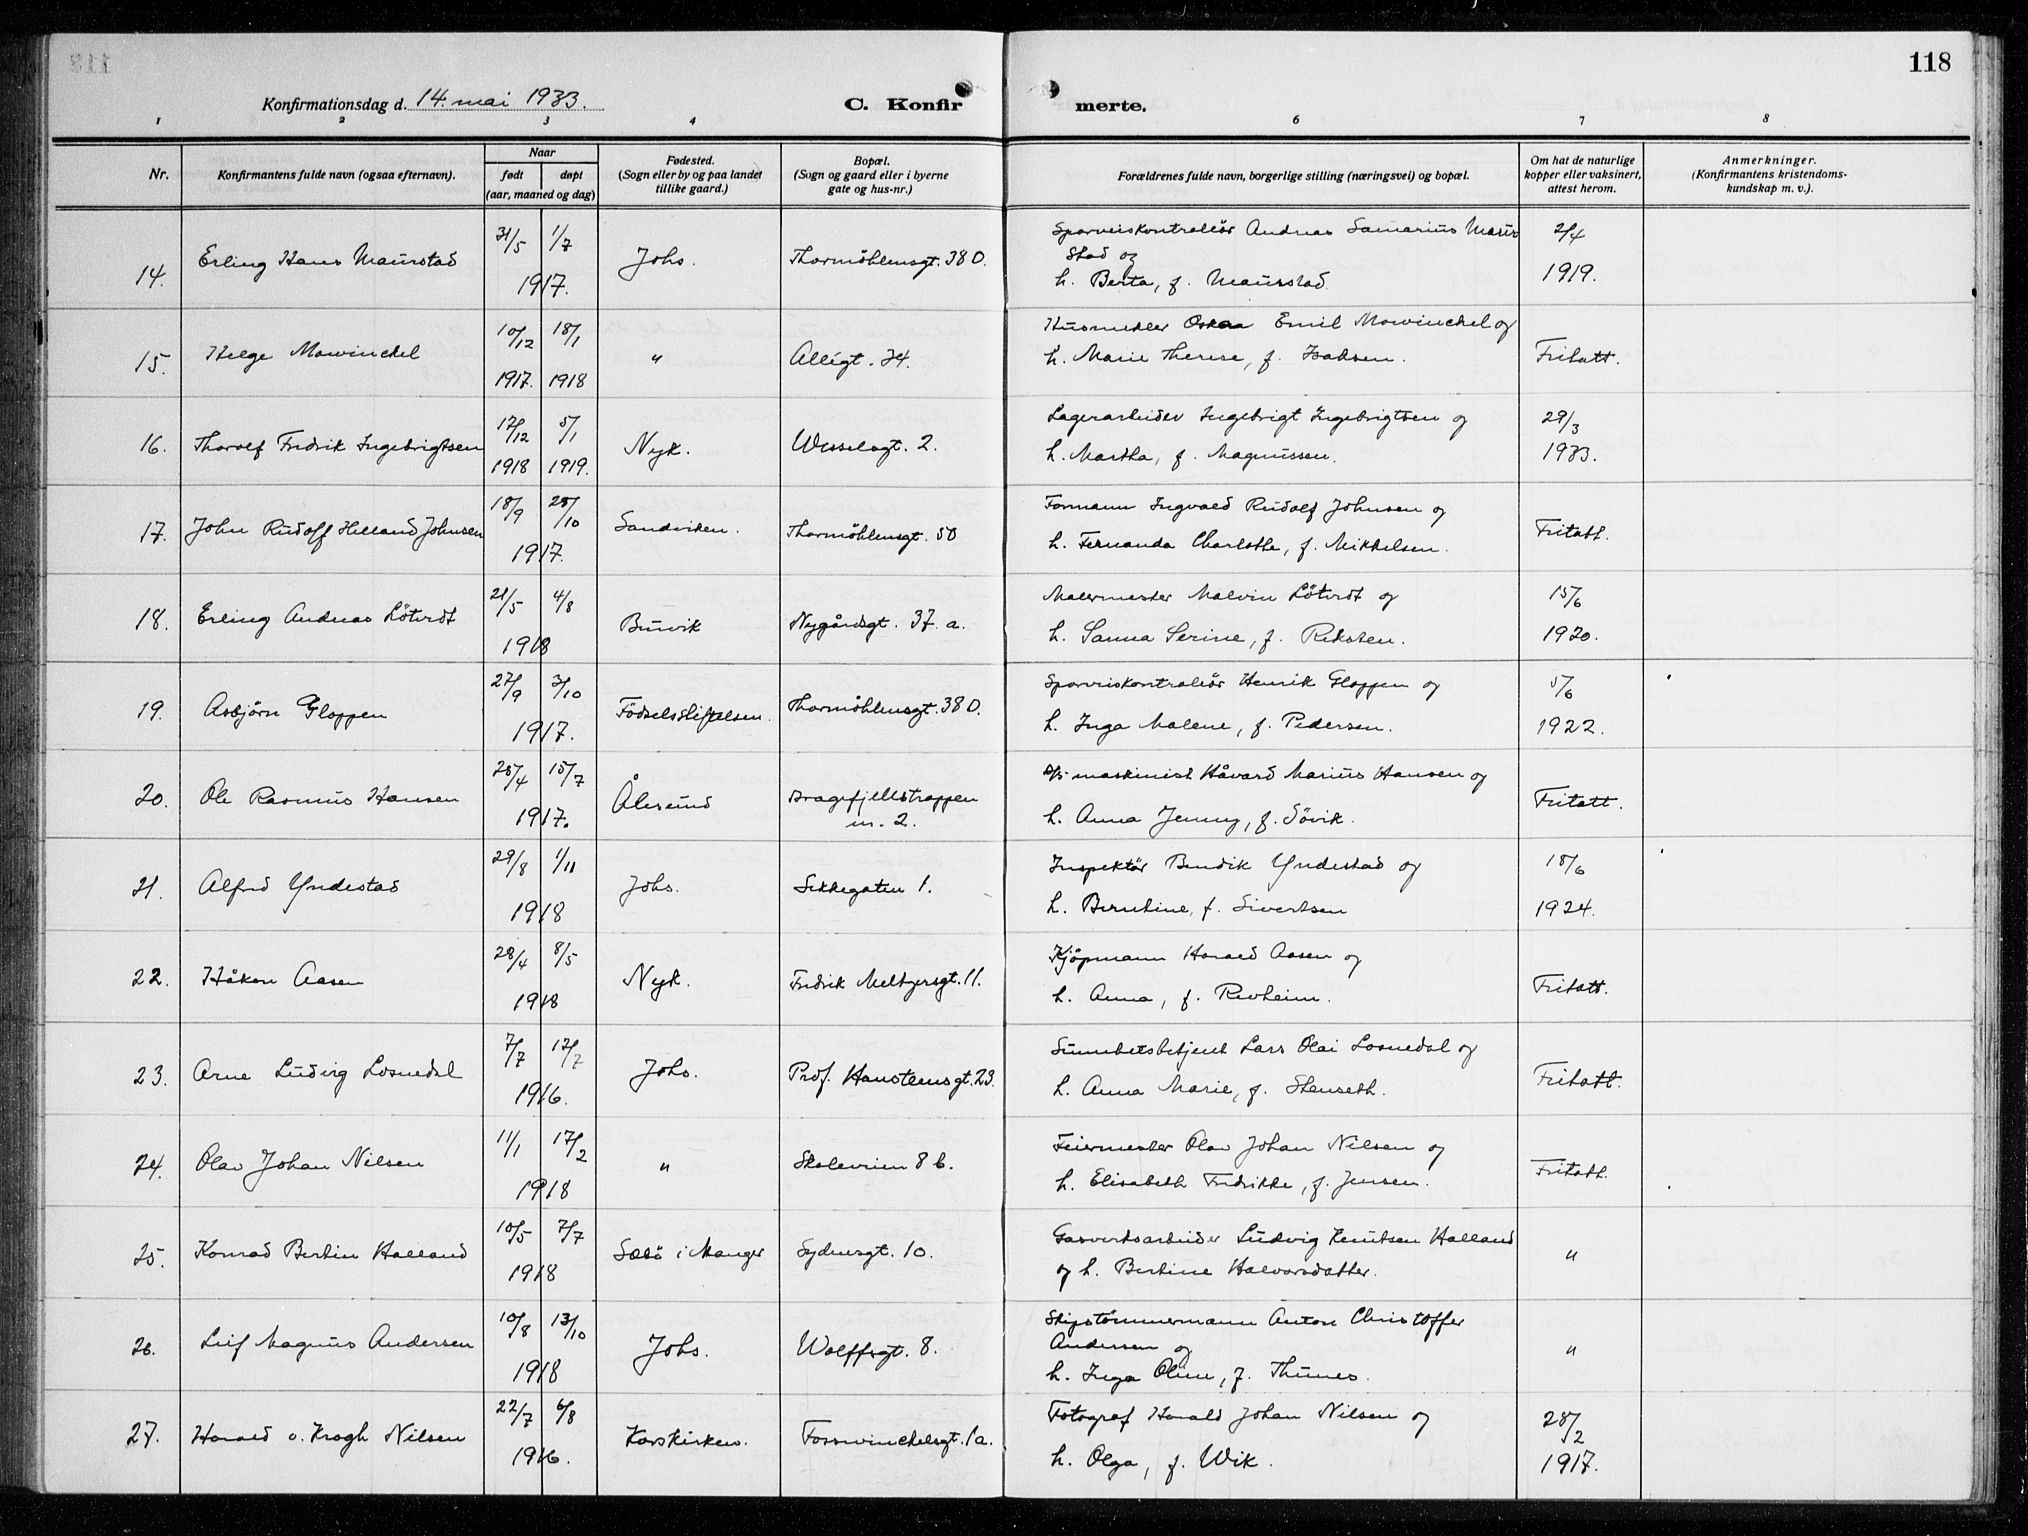 118
Konfirmationsdag d. 14. mai 1933.
C. Konfir merte.
1 2 3 4 6 7 8
Nr.
Konfirmantens fulde navn (ogsaa efternavn).
Naar
født døpt
(aar, maaned og dag)
Fødested.
(Sogn eller by og paa landet
tillike gaard.)
Bopæl.
(Sogn og gaard eller i byerne
gate og hus-nr.)
Forældrenes fulde navn, borgerlige stilling (næringsvei) og bopæl.
Om hat de naturlige
kopper eller vaksinert,
attest herom.
Anmerkninger.
(Konfirmantens kristendoms-
kundskap m. v.).
14. Erling Hans Maurstad 31/5 1/7 1917. Johs. Thormöhlensgt. 38 D.
Sporveiskontrollör Andreas Samarius Maur
stad og
h. Berta, f. Maurstad.
2/4
1919.
15. Helge Mowinckel 10/12 1917. 18/1 1918 " Allégt. 24.
Husmekler Emil Mowinckel og
h. Marie Therese, f. Isaksen.
Fritatt.
16. Thorolf Fredrik Ingebrigtsen 17/12 1918 5/1 1919. Nyk. Wesselsgt. 2.
Lagerarbeider Ingebrigt Ingebrigtsen og
h. Martha, f. Magnussen.
29/3
1933.
17. John Rudolf Helland Johnsen 18/9 28/10 1917. Sandviken. Thormöhlensgt. 50
Formann Ingvald Rudolf Johnsen og
h. Fernanda Charlotte, f. Mikkelsen.
Fritatt.
18. Erling Andreas Lötvedt 21/5 4/8 1918 Buvik Nygårdsgt. 37 a.
Malermester Malvin Lötvedt og
h. Sanna Serine, f. Reksten.
15/6
1920.
19. Asbjörn Gloppen 27/9 3/10 1917. Födselsstiftelsen. Thormöhlensgt. 38 D.
Sporveiskontrollör Henrik Gloppen og
h. Inga Malene, f. Pedersen.
5/6
1922.
20. Ole Rasmus Hansen 25/4 15/7 1917. Ålesund Dragefjellstrappen
nr. 2.
D/s maskinist Håvard Marius Hansen og
h. Anna Jenny, f. Sövik.
Fritatt.
21. Alfred Yndestad 29/8 1/11 1918 Johs. Sekkegaten 1.
Inspektör Bendik Yndestad og
h. Berntine, f. Sivertsen
18/6
1924.
22. Håkon Aasen 28/4 8/5 1918 Nyk. Fredrik Meltzersgt. 11.
Kjöpmann Harald Aasen og
h. Anna, f. Revheim.
Fritatt.
23. Arne Ludvig Losnedal 7/7 12/7 1916. Johs. Prof. Hansteensgt. 23.
Sunnhetsbetjent Lars Olai Losnedal og
h. Anna Marie, f. Stenseth.
Fritatt.
24. Olav Johan Nilsen 11/1 17/2 1918 " Skoleveien 8 b.
Feiermester Olav Johan Nilsen og
h. Elisabeth Fredrikke, f. Jensen.
Fritatt.
25. Konrad Bertin Halland 10/5 7/7 1918 Sæbö i Manger Sydnesgt. 10.
Gasverksarbeider Ludvig Knutsen Halland
og h. Bertine Halvorsdatter.
"
26. Leif Magnus Andersen 10/8 13/10 1918 Johs. Wolffsgt. 8.
Skipstömmermann Anton Christoffer
Andersen og
h. Inga Oline, f. Thunes.
"
27. Harald v. Krogh Nilsen 22/7 6/8 1916. Korskirken. Fosswinckelsgt. 1a.
Fotograf Harald Johan Nilsen og
h. Olga, f. Wik.
28/2
1917.